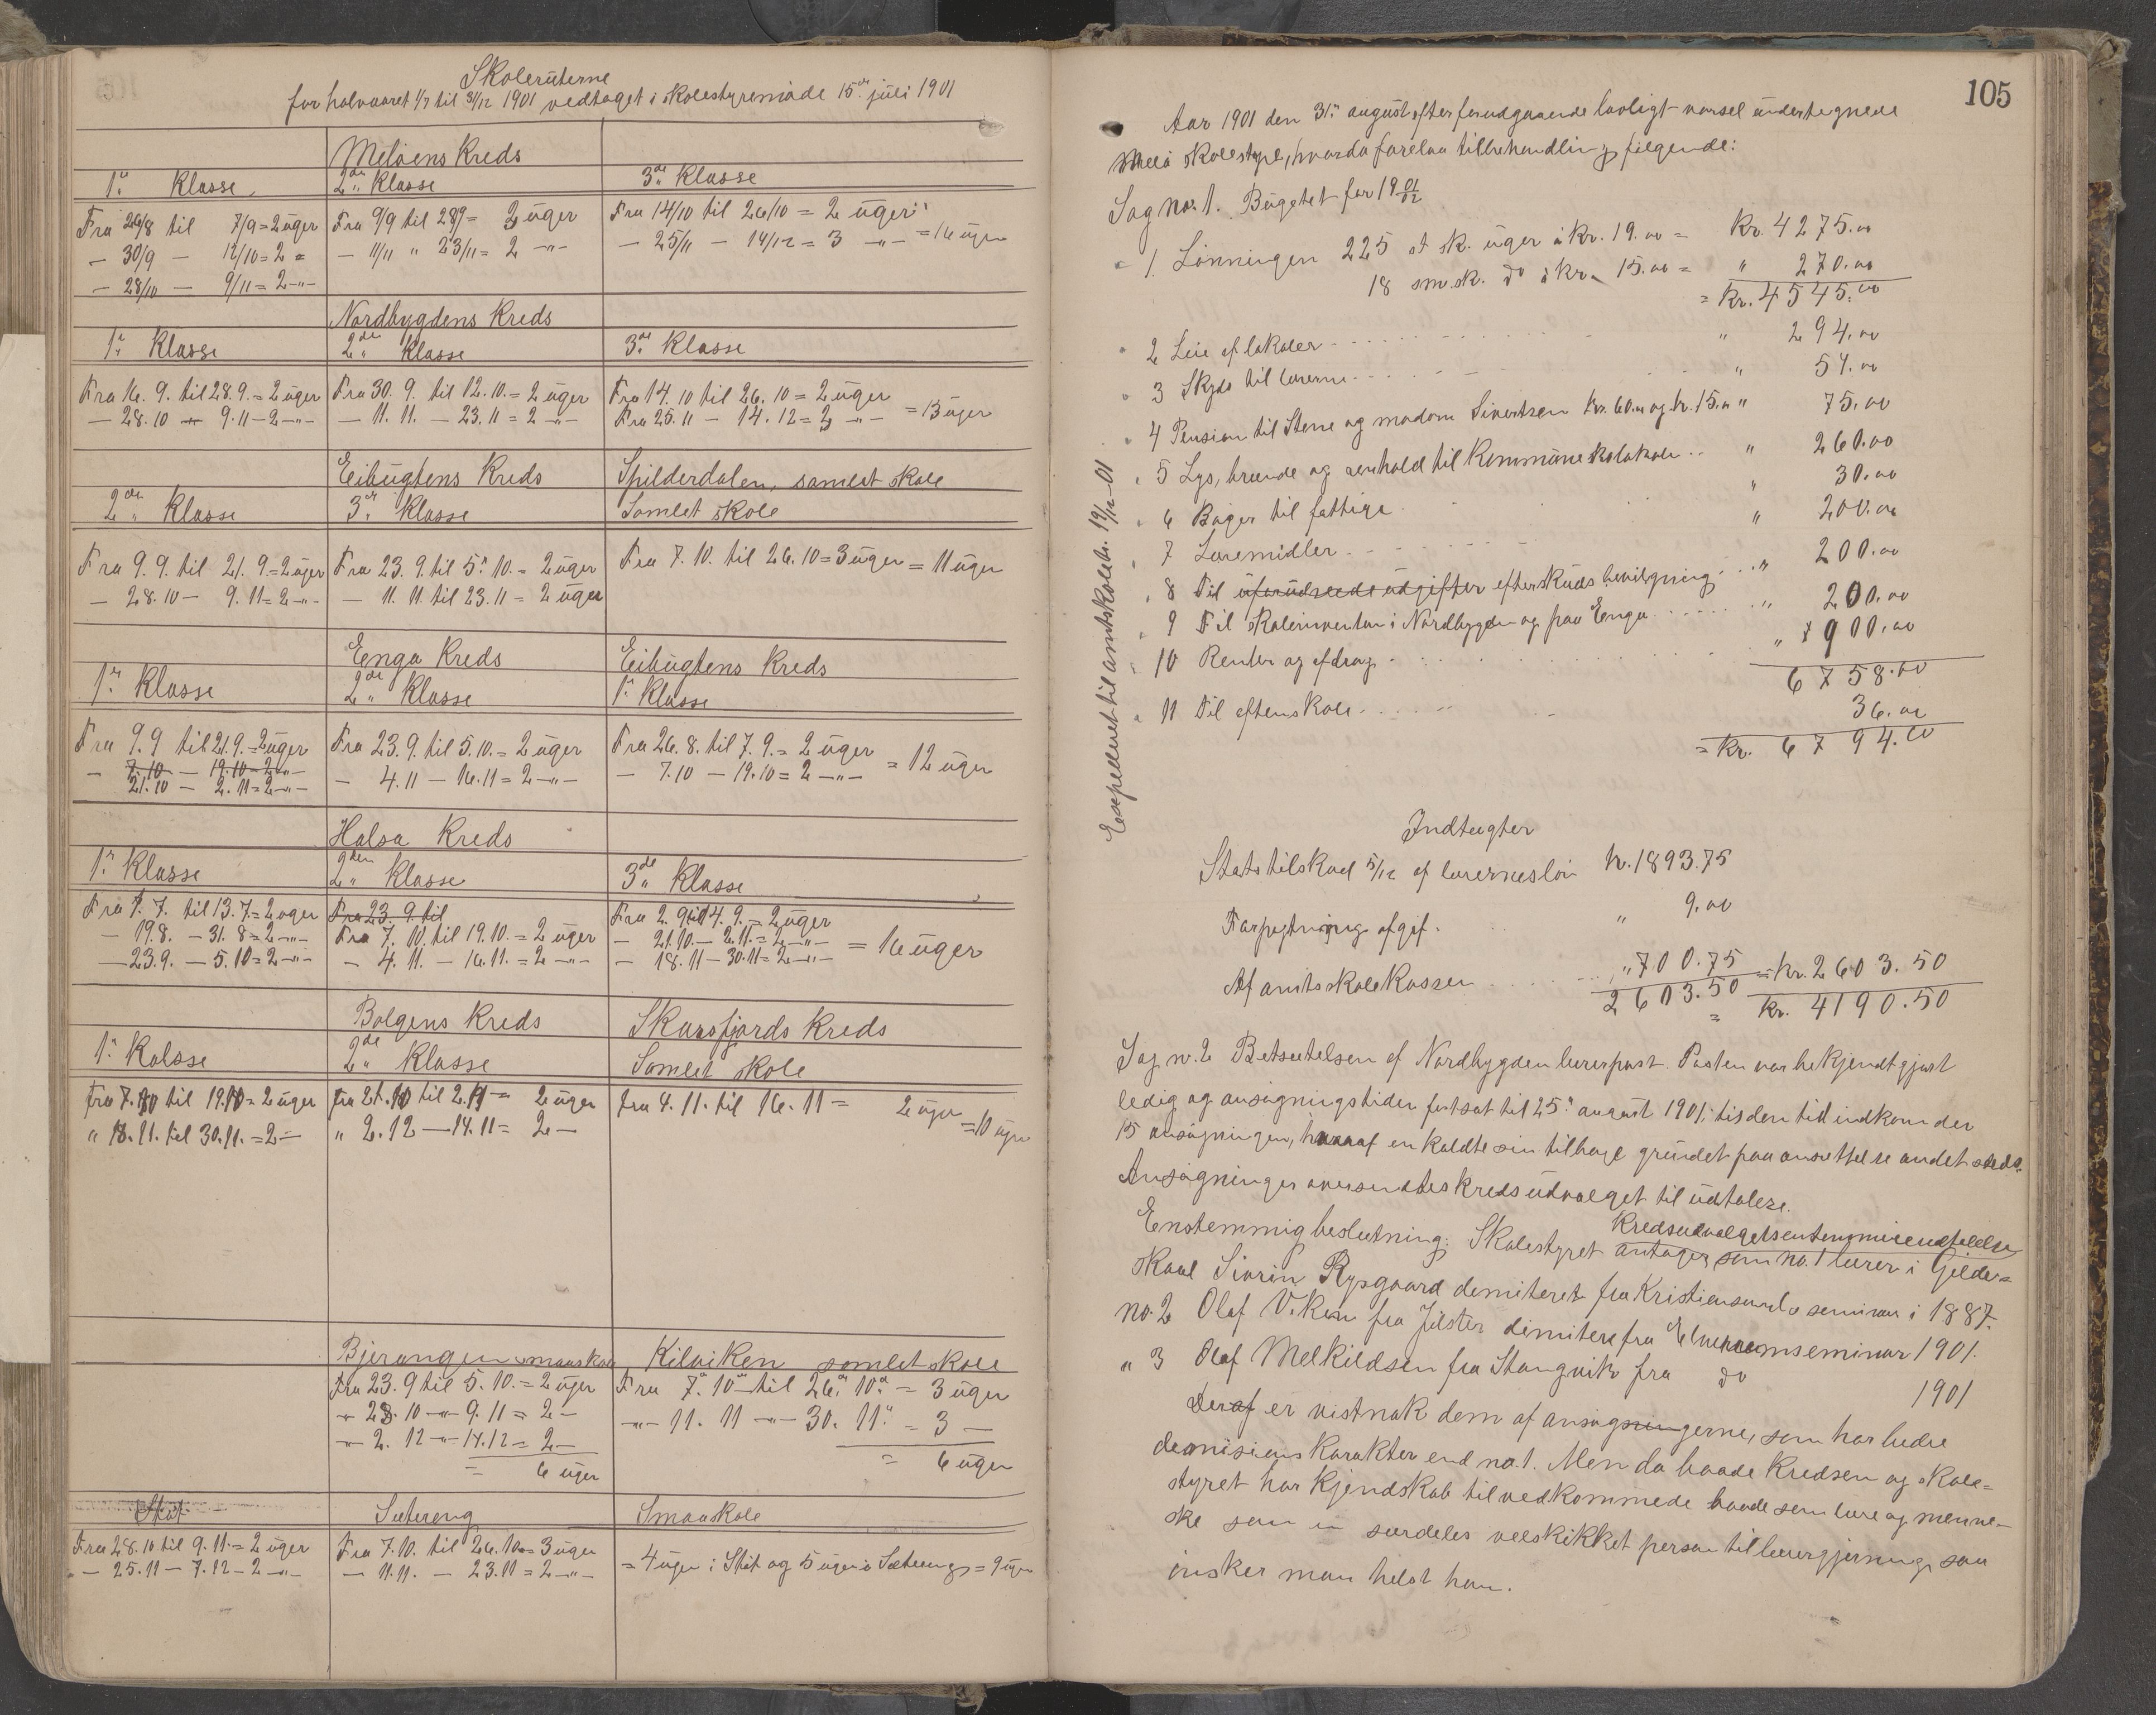 Skoleruterne
for halvaaret 1/7 til 31/12 1901 vedtaget i skolestyremøde 15de juli 1901
Meløens Kreds
1ste Klasse
2den Klasse
3die Klasse
Fra 26/8 til 7/9 = 2 uger
Fra 9/9 til 28/9 = 3 uger
Fra 14/10 til 26/10 = 2 uger
— 30/9 — 12/10 = 2 "
— 11/11 " 23/11 = 2 —"—
— 25/11 — 14/12 = 3 —"— = 16 uger
— 28/10 — 9/11 = 2 —"—
Nordbygdens Kreds
1ste Klasse
2den Klasse
3die Klasse
Fra 16. 9. til 28. 9. = 2 uger
Fra 30. 9. til 12. 10. = 2 uger
Fra 14. 10 til 26. 10 = 2 uger
— 28. 10 — 9. 11 — 2 —"—
— 11. 11. — 23. 11 = 2 —"—
Fra 25. 11 — 14. 12 = 3 —"— = 13 uger
Eibugtens Kreds
Spilderdalen, samlet skole
2den Klasse
3die Klasse
Samlet skole
Fra 9. 9. til 21. 9. = 2 uger
Fra 23. 9. til 5. 10. = 2 uger
Fra 7. 10. til 26. 10 = 3 uger = 11 uger
— 28. 10 — 9. 11 = 2 —"—
— 11. 11. til 23. 11 = 2 uger
Enga Kreds
Eibugtens Kreds
1ste Klasse
2den Klasse
1ste Klasse
Fra 9. 9 til 21. 9. = 2 uger
Fra 23. 9. til 5. 10. = 2 uger
Fra 26. 8. til 7. 9. = 2 uger
— 7. 10 — 19. 10 = 2 —"—
— 4. 11 — 16. 11 = 2 —"—
— 7. 10 — 19. 10 = 2 —"— = 12 uger
21. 10 — 2. 11 = 2 —"—
Halsa Kreds
1ste Klasse
2den Klasse
3de Klasse
Fra 1. 7. til 13. 7. = 2 uger
Fra 23. 9. til
Fra 2. 9 til 14. 9. = 2 uger
— 19. 8. — 31. 8 = 2 —"—
Fra 7. 10. til 19. 10. = 2 uger
— 21. 10. — 2. 11. = 2 —"—
— 23. 9. — 5. 10 = 2 —"—
— 4. 11. — 16. 11. = 2 —"—
— 18. 11 — 30. 11 = 2 —"— = 16 uger
Bolgens Kreds
Skarsfjords Kreds
1ste Kalsse
2de Klasse
Samlet skole
fra 7. 10 til 19. 10 = 2 uger
fra 21. 10 til 2. 11 = 2 uger
fra 4. 11. til 16. 11 = 2 uger
" 18. 11. til 30. 11. = 2 —
" 2. 12 — 14. 11 = 2 —
= 10 uger
Bjerangen smaaskole
Kilviken samlet skole
Fra 23. 9 til 5. 10. = 2 uger
Fra 7. 10 til 26. 10. = 3 uger
—"— 28. 10 —"— 9. 11 = 2 —
—"— 11. 11 —"— 30. 11. = 3 —
—"— 2. 12 —"— 14. 12 = 2 —
= 6 uger
= 6 uger
Støt
Sætereng
Smaaskole
Fra 28. 10 til 9. 11. = 2 uger
Fra 7. 10. til 26. 10. = 3 uger
— 25. 11 — 7. 12 — 2 —"—
— 11. 11. — 23. 11 = 2 —"—
= 4 uger i Støt og 5 uger i Sætereng = 9 uger
105
Aar 1901 den 31te august efter forudgaaende lovligt varsel undertegnede
Melø skolestyre, hvorda forelaa til behandling følgende:
Sag no. 1. Bugetet for 19 01/02
1. Lønningen 225 st sk. uger à kr. 19.00 = Kr. 4275.00
18 sm.sk. do à kr. 15.00 = " 270.00
= Kr. 4545.00
2 Leie af lokaler " 294.00
3 Skyds til lærerne " 54.00
4 Pension til Stene og madam Sivertsen kr. 60.00 og kr. 15.00 " 75.00
5 Lys, brænde og renhold til Kommunesklokale " 260.00
6 Bøger til fattige " 30.00
7 Læremidler " 200.00
8 Til uforudseede udgifter efterskuds bevilgning " 200.00
9 Til skoleinventar i Nordbygden og paa Enga " 200.00
10 Renter og afdrag " 900.00
6758.00
11 Til aftenskole 36.00
= Kr. 6794.00
Expederet til amtskoledir. 19/12 01
Indtægter
Statstilskud 5/12 af lærernesløn kr. 1893.75
Forpagtning afgif. " 9.00
Af amtsskolekassen " 700.75 = kr. 2603.50
2603.50 = kr. 4190.50
Sag nr. 2 Betsættelsen af Nordbygden lærerpost. Posten var bekjendtgjort
ledig og ansøgningstiden fortsat til 25de august 1901; tisden tid indkom der
15 ansøgningen, hvoraf en kaldte sin tilbage grundet paa ansættelse andetsteds.
Ansøgninger oversendtes kredsudvalget til udtalese.
Kredsudvalgets
Enstemmig beslutning: Skolestyret antager som no. 1 lærer i Gilde=
skaal Sivrin Rypgaard demiteret fra Kristiansunds seminar i 1887.
no. 2 Olaf Viken fra Jølster dimitere fra Elverumseminar 1901.
" 3 Olaf Melkildsen fra Stangvik fra do 1901
Deraf er vistnok dem af ansøgerne, som har bedre
demisionskarakter end no. 1. Men da baade Kredsen og skole=
styret har kjendskab til vedkommede baade som lære og menne-
ske som en særdeles velskikket person til lærergjerning, saa
ønsker man helst ham.